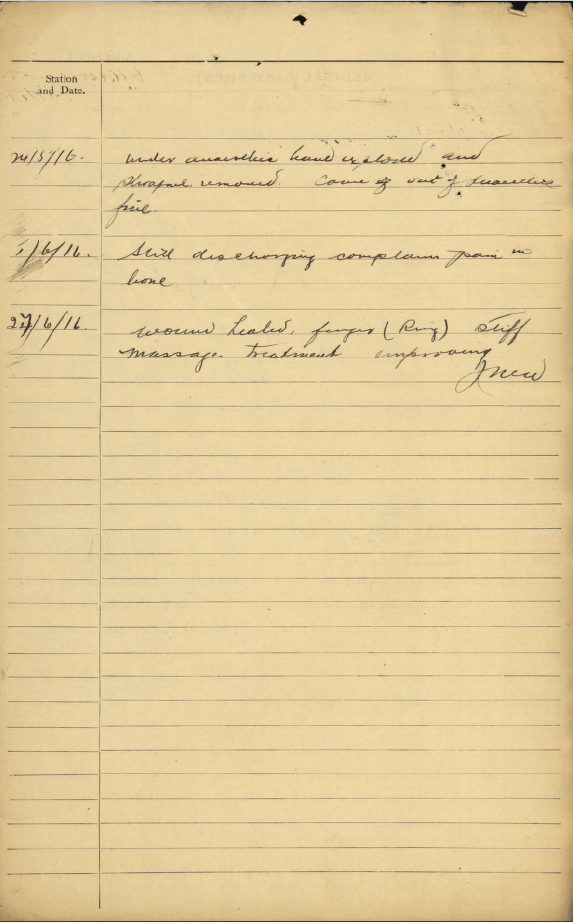 Station
and Date.
24/5/16. Under anaesthic hand explored and
shrapnel removed. Came out of anaesthic
fine.
/6/16. Still discharging complains pain in
bone
27/6/16. wound healed, finger (Ring) stiff
massage. treatment improving